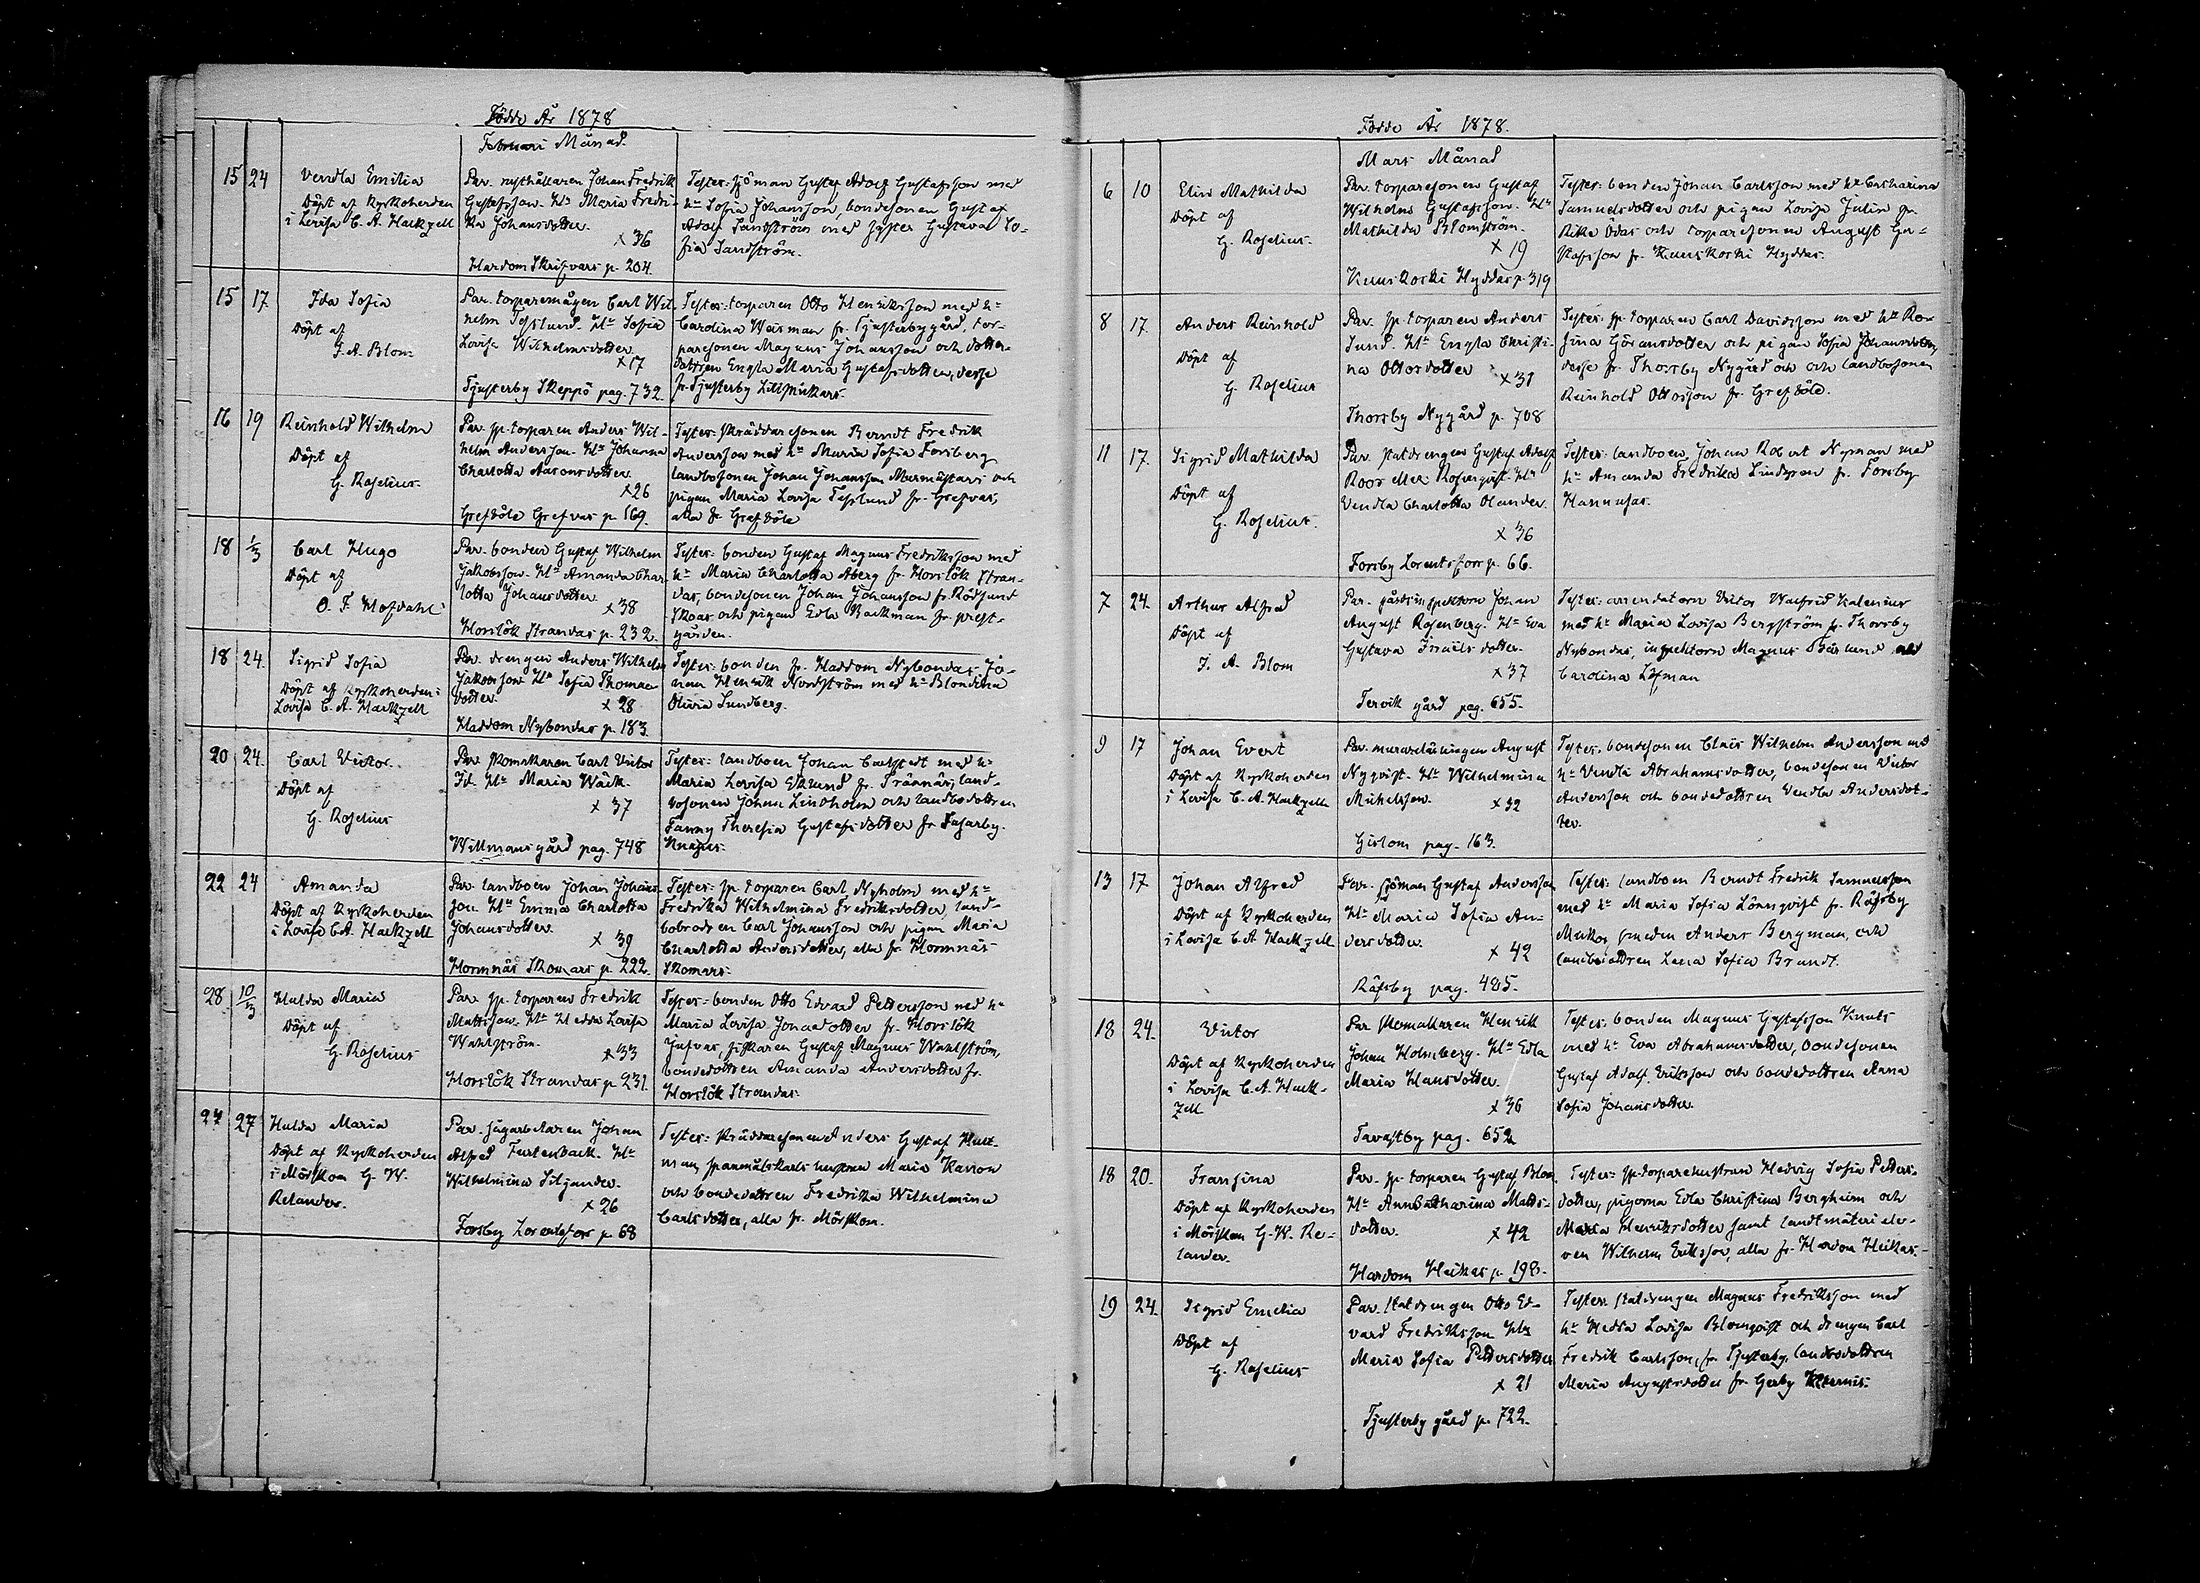 Födde År 1878
Februari Månad.
15 24
Vendla Emilia
Döpt af Kyrkoherden
i Lovisa C. A. Hackzell
Par. rusthållaren Johan Fredrik
Gustafsson. Hu Maria Fredri-
ka Johansdotter.
x 36
Hardom Skrifvars p. 204.
Testes: sjöman Gustaf Adolf Gustafsson med
hu Sofia Johansson, bondesonen Gustaf
Adolf Sandström med syster Gustava So-
fia Sandström.
15 17
Ida Sofia
Döpt af
J. A. Blom
Par. torparemågen Carl Wil-
helm Teslund. Hu Sofia
Lovisa Wilhelmsdotter
x 17
Tjusterby Skeppö pag. 732.
Testes: torparen Otto Henriksson med hu
Carolina Weisman fr. Tjusterby gård, tor-
paresonen Magnus Johansson och dotter-
dottren Engla Maria Gustafsdotter, desse
fr. Tjusterby Lillprickars.
16 19
Reinhold Wilhelm
Döpt af
G. Roselius
Par. sp. torparen Anders Wil-
helm Andersson. Hu Johanna
Charlotta Aaronsdotter.
x 26
Grefböle Grefvas p. 169.
Testes: skräddaresonen Berndt Fredrik
Andersson med hu Maria Sofia Forsberg
landbosonen Johan Johansson Murmästars och
pigan Maria Lovisa Teslund fr. Grefvas,
alla fr Grefböle
18 1/3
Carl Hugo
Döpt af
O. F. Hofdahl
Par. bonden Gustaf Wilhelm
Jakobsson. Hu Amanda Char-
lotta Johansdotter.
x 38
Horslök Strandas p. 232.
Testes: bonden Gustaf Magnus Fredriksson med
hu Maria Charlotta Åberg fr. Horslök Stran-
das, bondesonen Johan Johansson fr. Rödsund
Skoas och pigan Edla Backman fr. prest-
gården.
18 24.
Sigrid Sofia
Döpt af Kyrkoherden i
Lovisa C. A. Hackzell
Par. drengen Anders Wilhelm
Jakobsson Hu Sofia Thomas-
dotter.
x 28
Haddom Nybondas p. 183.
Testes: bonden fr. Haddom Nybondas Jo-
nan Henrik Nordström med hu Blondina
Olivia Sundberg.
20 24.
Carl Victor.
Döpt af
G. Roselius
Par skomakaren Carl Victor
Id. Hu Maria Wäck.
x 37
Willmansgård pag. 748
Testes: landboen Johan Carlstedt med hu
Maria Lovisa Eklund fr. Trännäs, land-
bosonen Johan Lindholm och landbodottren
Fanny Theresia Gustafsdotter fr Sasarby.
Knapas.
22 24
Amanda
Döpt af Kyrkoherden
i Lovisa C A. Hackzell
Par. landboen Johan Johans-
son. Hu Emma Charlotta
Johansdotter.
x 39
Hormnäs Skomars p. 222.
Testes: sp. torparen Carl Nyholm med hu
Fredrika Wilhelmina Fredriksdotter, land-
bobroden Carl Johansson och pigan Maria
Charlotta Andersdotter, alla fr. Hormnäs
Skomars.
28 10/3
Hulda Maria
Döpt af
G. Roselius
Par sp. torparen Fredrik
Mattsson. Hu Hedda Lovisa
Wahlström.
x 33
Horslök Strandas p 231.
Testes: bonden Otto Edvard Pettersson med hu
Maria Lovisa Jonaedotter fr. Horslök
Jufvas, fiskaren Gustaf Magnus Wahlström,
bondedottren Amanda Andersdotter fr.
Horslök Strandas.
27 27
Hulda Maria
Döpt af Kyrkoherden
i Mörskom G. W.
Relander.
Par. sågarbetaren Johan
Alfred Furtenback. Hu
Wilhelmina Siljander.
x 26
Forsby Lorentsfors p. 68
Testes: skräddaresonen Anders Gustaf Hult-
man, spannmålskarls hustrun Maria Karron
och bondedottren Fredrika Wilhelmina
Carlsdotter, alla fr. Mörskom.
Födde År 1878.
Mars Månad
6 10
Elin Mathilda
Döpt af
G. Roselius.
Par. torparesonen Gustaf
Wilhelm Gustafsson. Hu
Mathilda Blomström.
x 19
Kuuskoski Hyddas p. 319
Testes: bonden Johan Carlsson med hu Catharina
Samuelsdotter och pigan Lovisa Julin fr.
Rika Ödas och torparesonen August Gu-
stafsson fr. Kuuskoski Hyddas.
8 17.
Anders Reinhold
Döpt af
G. Roselius
Par. sp. torparen Anders
Sund. Hu Engla Christi-
na Ottosdotter
x 31
Thorsby Nygård p. 708
Testes: sp. torparen Carl Davidsson med hu Ro-
sina Göransdotter och pigan Sofia Johansdotter,
desse fr. Thorsby Nygård och och landbosonen
Reinhold Ottosson fr. Grefböle.
11 17.
Sigrid Mathilda
Döpt af
G. Roselius.
Par. statdrengen Gustaf Adolf
Roos eller Rosenqvist. Hu
Vendla Charlotta Olander.
x 36
Forsby Lorentsfors p. 66.
Testes: landboen Johan Robert Nyman med
hu Amanda Fredrika Lindgren fr. Forsby
Hannusas.
7 24.
Arthur Alfred
Döpt af
J. A. Blom
Par. gårdsinspektorn Johan
August Rosenberg. Hu Eva
Gustava Israelsdotter.
x 37
Tervik gård pag. 655.
Testes: arrendatorn Victor Walfrid Kalenius
med hu Maria Lovisa Bergström fr. Thorsby
Nybondas, inspektorn Magnus Bärlund och
Carolina Löfman
9 17
Johan Evert
Döpt af Kyrkoherden
i Lovisa C. A. Hackzell
Par. murarelärlingen August
Nyqvist. Hu Wilhelmina
Mickelsson.
x 32
Gislom pag. 163.
Testes. bondesonen Claës Wilhelm Andersson med
hu Vendla Abrahamsdotter, bondesonen Victor
Andersson och bondedottren Vendla Andersdot-
ter.
13 17.
Johan Alfred
Döpt af Kyrkoherden
i Lovisa C. A Hackzell
Par. sjöman Gustaf Andersson
Hu Maria Sofia An-
dersdotter.
x 42
Räfsby pag. 485.
Testes: landboen Berndt Fredrik Samuelsson
med hu Maria Sofia Lönnqvist fr. Räfsby
Mickos, smeden Anders Bergman, och
landbodottren Lena Sofia Brandt.
18 24.
Victor
Döpt af Kyrkoherden
i Lovisa C. A. Hack-
zell
Par skomakaren Henrik
Johan Holmberg. Hu Edla
Maria Hansdotter.
x 36
Tavastby pag. 652
Testes: bonden Magnus Gustafsson Knuts
med hu Eva Abrahamsdotter, bondesonen
Gustaf Adolf Eriksson och bondedottren Anna
Sofia Johansdotter.
18 20.
Fransina
Döpt af Kyrkoherden
i Mörskom G. W. Re-
lander.
Par. sp. torparen Gustaf Blom.
Hu Anna Catharina Matts-
dotter.
x 42
Hardom Heikas p. 198.
Testes: sp. torparehustrun Hedvig Sofia Petters-
dotter, pigorna Edla Christina Bergheim och
Maria Henriksdotter samt landtmäteri ele-
ven Wilhelm Eriksson, alla fr. Hardom Heikas.
19 24.
Sigrid Emelia
Döpt af
G. Roselius
Par. statdrengen Otto Ed-
vard Fredriksson Hu
Maria Sofia Pettersdotter
x 21
Tjusterby gård p. 722.
Testes. statdrengen Magnus Fredriksson med
hu Hedda Lovisa Blomqvist och drengen Carl
Fredrik Carlsson, fr. Tjusterby, landbodottren
Maria Augustsdotter fr. Gerby